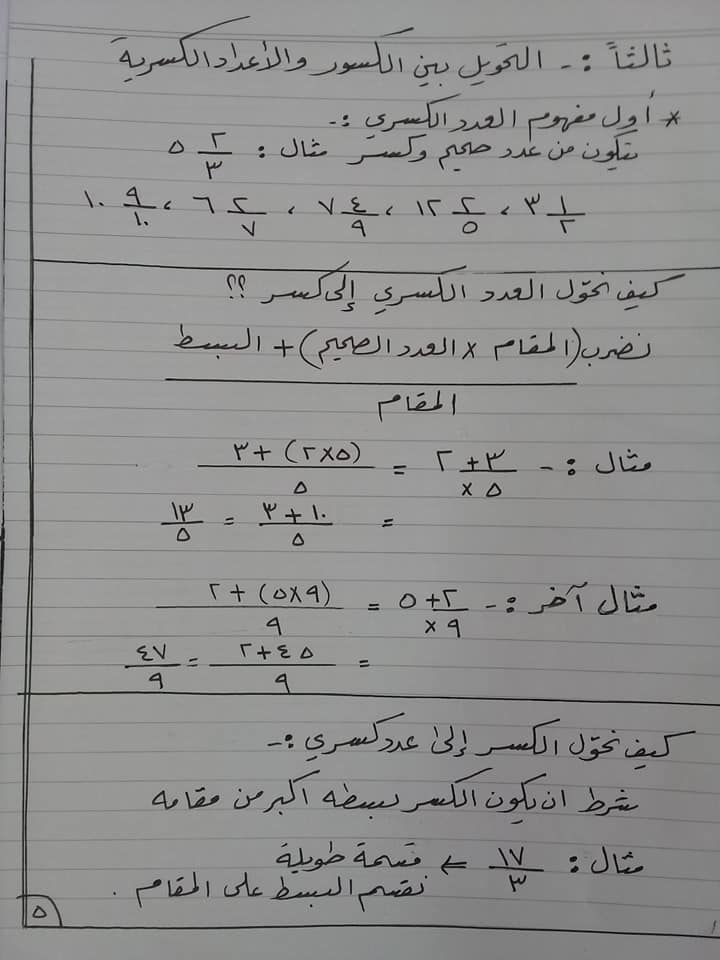 ثالثاً :- التحويل بين الكسور والأعداد الكسرية
* أول مفهوم العدد الكسري :-
يتكون من عدد صحيح وكسر مثال : ٥ ٢/٣
٣ ١/٢ ، ١٢ ٢/٥ ، ٧ ٤/٩ ، ٦ ٢/٧ ، ١٠ ٩/١٠
كيف نحوّل العدد الكسري إلى كسر ؟؟
نضرب (المقام × العدد الصحيح) + البسط
المقام
مثال :- ٢ +٣/×٥ = (٥×٢) + ٣/٥
= ١٠ + ٣/٥ = ١٣/٥
مثال آخر :- ٥ +٢/×٩ = (٩×٥) + ٢/٩
= ٤٥ + ٢/٩ = ٤٧/٩
كيف نحوّل الكسر إلى عدد كسري :-
شرط ان يكون الكسر بسطه اكبر من مقامه
مثال : ١٧/٣ ← قسمة طويلة
نقسم البسط على المقام .
٥